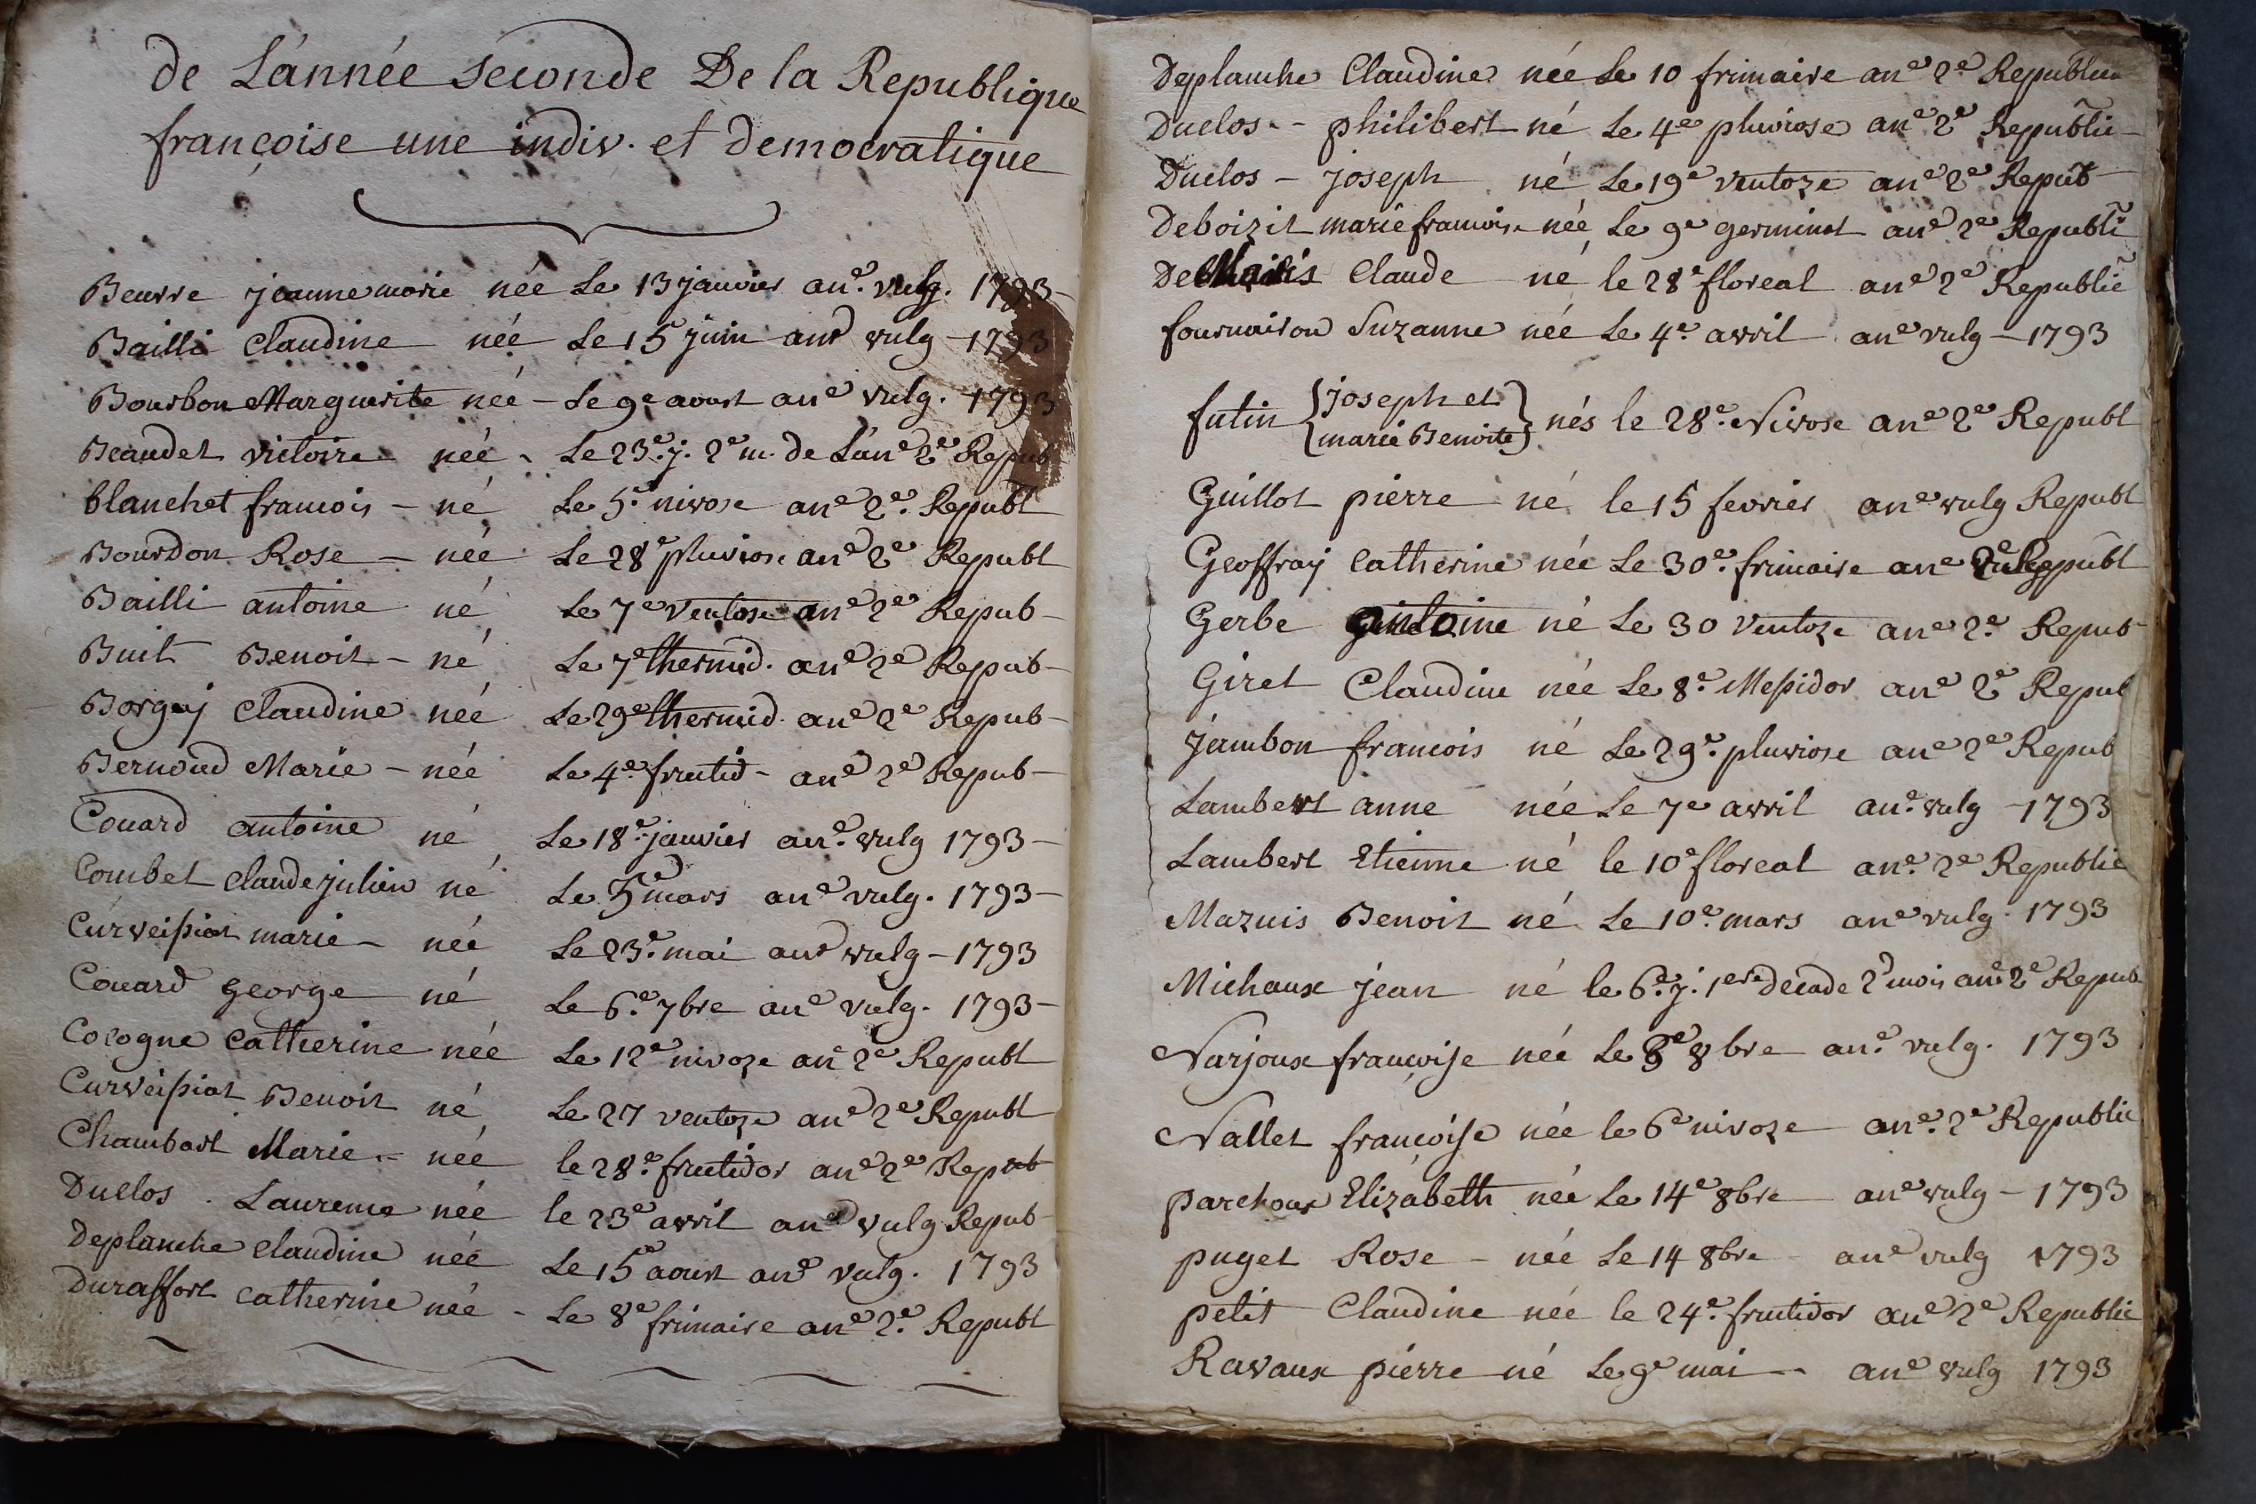 de L'année seconde De la Republique
françoise une indiv. et democratique
Beurre jeanne marie née Le 13 janvier an.e vulg. 1793 -
Bailli Claudine née Le 15 juin ane vulg - 1793
Bourbon Marguerite née - Le 9e aoust ane vulg. 1793
Beaudet victoire née - Le 23.e j. 2e m. de L'ane 2e Repub
blanchet francois - né Le 5.e nivose ane 2.e Republ
Bourdon Rose - née Le 28e pluviose ane 2e Republ
Bailli antoine né Le 7e ventose ane 2e Repub -
Buit Benoit - né Le 7e thermid. ane 2e Repub -
Borgey Claudine née Le 29e thermid. ane 2e Repub -
Bernoud Marie - née Le 4.e fructid - ane 2e Repub -
Couard antoine né Le 18.e janvier an.e vulg 1793 -
Combet claude julien né Le 5e mars ane vulg. 1793 -
Curveissiat marie - née Le 23.e mai ane vulg - 1793
Couard george né Le 6.e 7bre ane vulg. 1793 -
Cocogne Catherine née Le 12e nivoze ane 2e Republ
Curveissiat Benoit né Le 27 ventoze ane 2e Republ
Chambart Marie - née le 28.e fructidor ane 2e Repub
Duclos . Laurence née le 23e avril ane vulg Repub -
Deplanche Claudine née Le 15e aoust ane vulg. 1793
Duraffort Catherine née - Le 8e frimaire ane 2.e Republ
Deplanche Claudine née Le 10 frimaire ane 2e Republic
Duclos - - philibert né Le 4e pluviose ane 2e Republic -
Duclos - joseph né Le 19e ventoze ane 2e Repub -
Deboizit marie francoise née Le 9e germinal ane 2e Republi
Claude né le 28e floreal ane 2e Republic
fournaison Suzanne née Le 4.e avril ane vulg - 1793
futin { joseph et
marie Benoite } nés le 28.e Nivose ane 2e Republ
Guillot pierre né le 15 fevrier ane vulg Republ
Geoffray Catherine née Le 30.e frimaire ane 2e Republ
Gerbe antoine né Le 30 ventoze ane 2.e Repub -
Giret Claudine née Le 8.e Messidor ane 2e Repub
jambon francois né Le 29.e pluviose ane 2e Repub
Lambert anne née Le 7e avril an.e vulg - 1793
Lambert Etienne né le 10e floreal an.e 2e Republic
Mazuis Benoit né Le 10.e mars ane vulg. 1793
Michaux jean né le 6.e j. 1ere decade 2d mois ane 2e Repub
Narjoux françoise née Le 8e 8bre an.e vulg. 1793
Nallet françoise née le 6e nivoze an.e 2e Republic
parchoux Elizabeth née Le 14e 8bre ane vulg - 1793
puget Rose - née Le 14 8bre ane vulg 1793
petit Claudine née le 24.e fructidor ane 2e Republic
Ravaux pierre né Le 9e mai - - ane vulg 1793